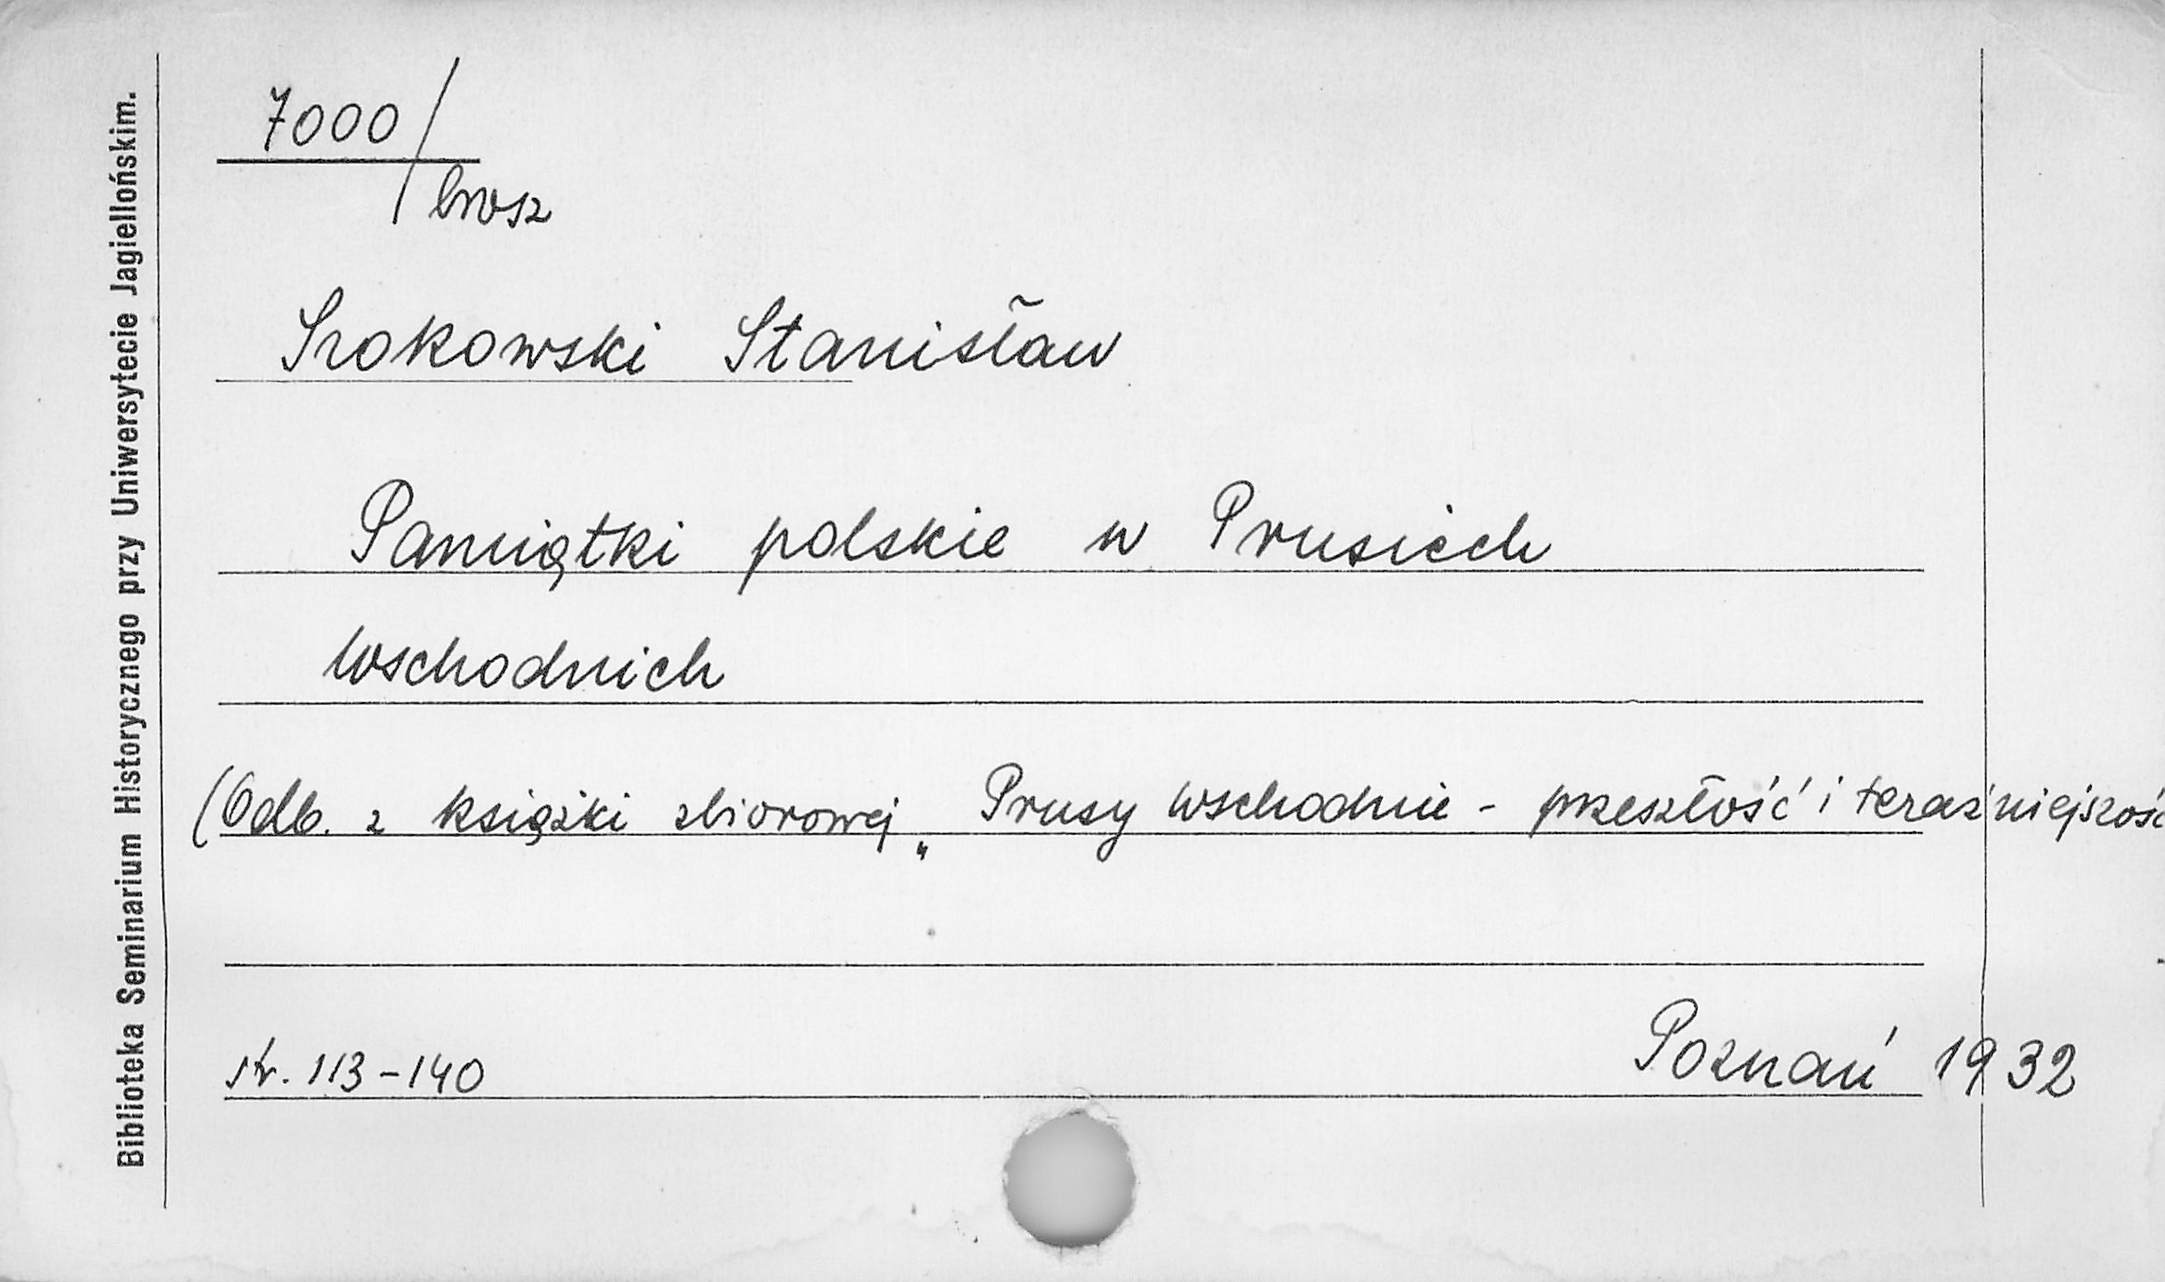 Biblioteka Seminarium Historycznego przy Uniwersytecie Jagiellońskim.
7000/
brosz
Srokowski Stanisław
Pamiątki polskie w Prusiech
Wschodnich
(Odb. z książki zbiorowej „Prusy Wschodnie - przeszłość i teraźniejszość
str. 113-140
Poznań 1932